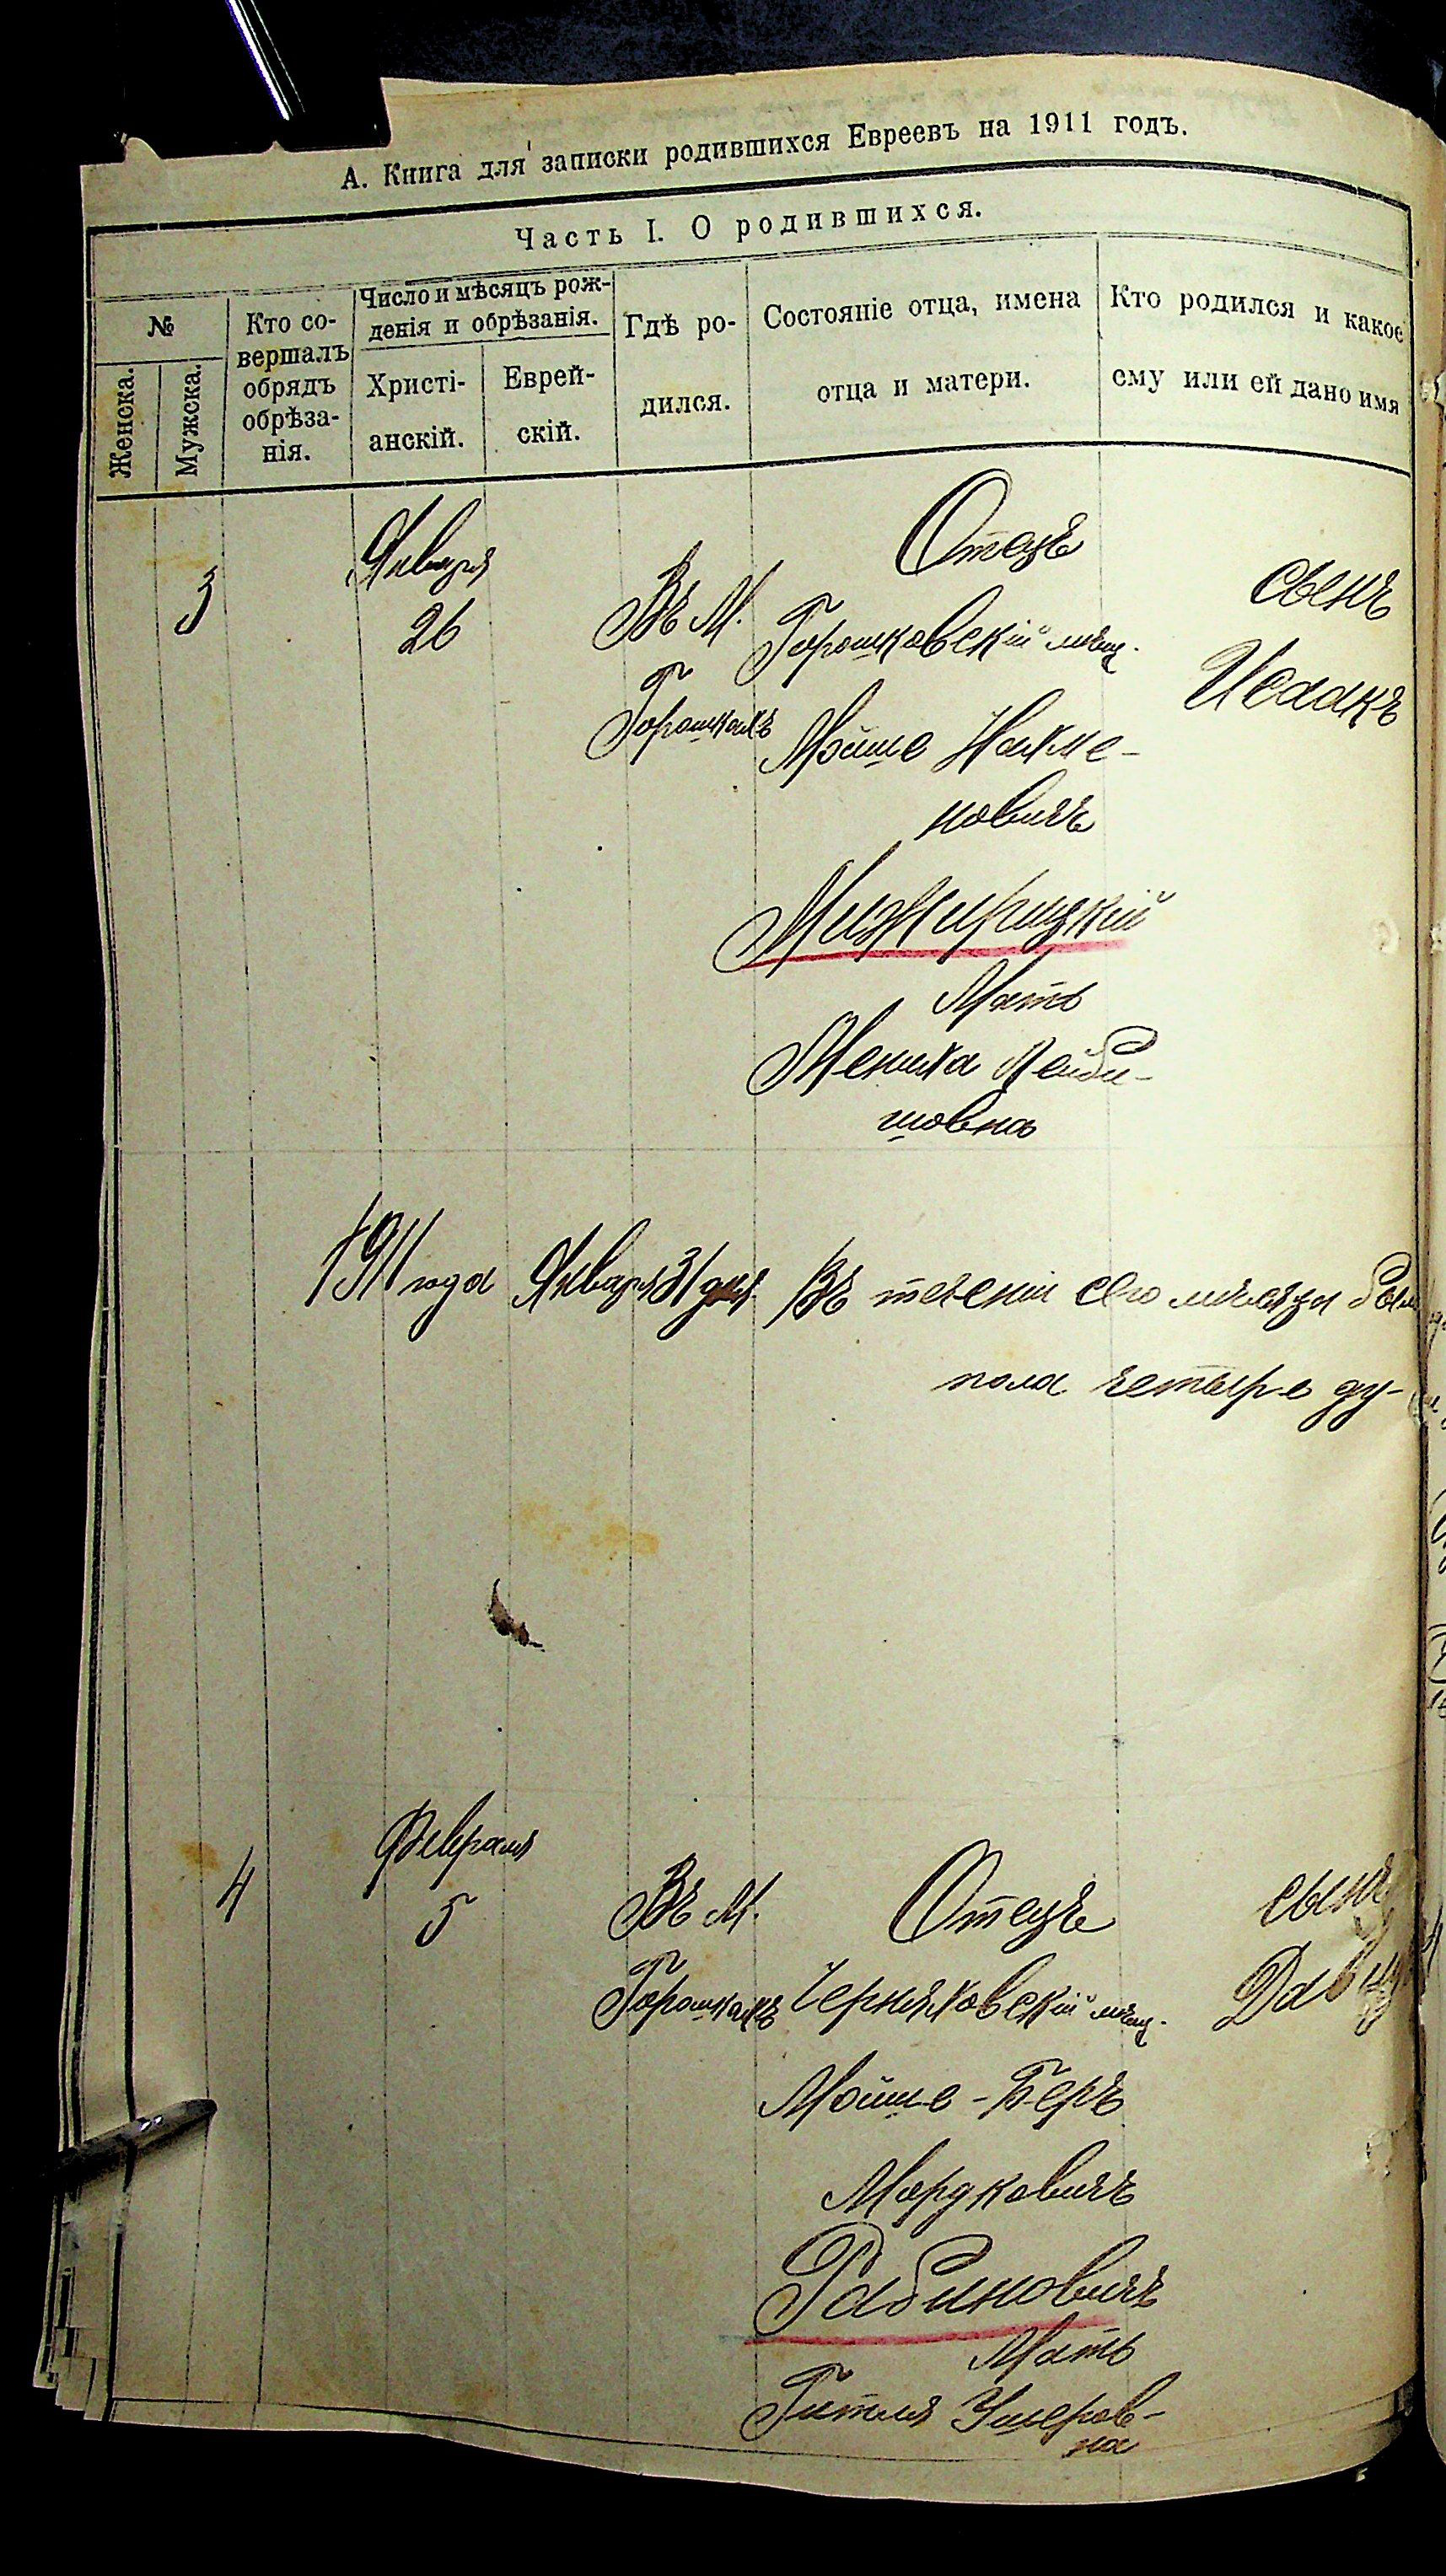 А. Книга для записки родившихся Евреевъ на 1911 годъ.
Часть I. О родившихся.
№
Женска.
Мужска.
Кто со-
вершалъ
обрядъ
обрѣза-
нія.
Число и мѣсяцъ рож-
денія и обрѣзанія.
Христі-
анскій.
Еврей-
скій.
Гдѣ ро-
дился.
Состояніе отца, имена
отца и матери.
Кто родился и какое
ему или ей дано имя
3
Января
26
Въ М.
Горошкахъ
Отецъ
Горошковскій мѣщ.
Мойше Нахме-
новичъ
Мижирицкій
Мать
Лейби-
шовна
сынъ
Исаакъ
1911 года Января 31 дня Въ теченіи сего мѣсяца
пола четыре ду-
4
Февраля
5
Въ М.
Горошкахъ
Отецъ
Черняховскій мѣщ.
Мойше-Беръ
Мордковичъ
Рабиновичъ
Мать
Гитля Ушеров-
на
сынъ